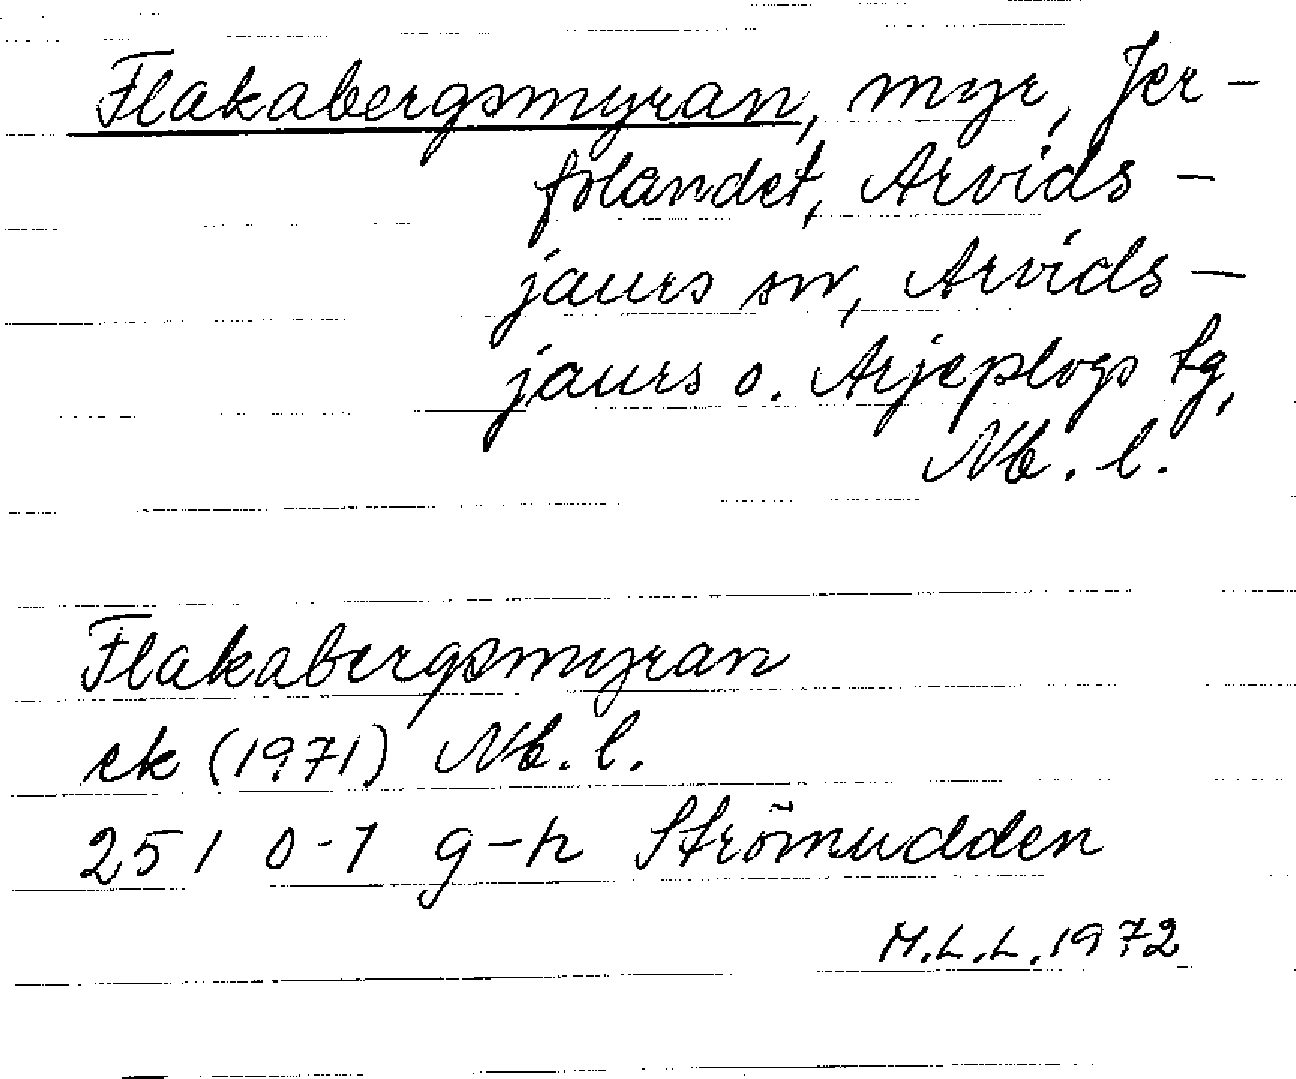 Flakabergsmyran, myr, Jer-
folandet, Arvids-
jaurs sn, Arvids-
jaurs o. Arjeplogs tg,
Nb. l.
Flakabergsmyran
ek (1971) Nb. l.
25 I 0-1 g-h Strömudden
M.L.L. 1972